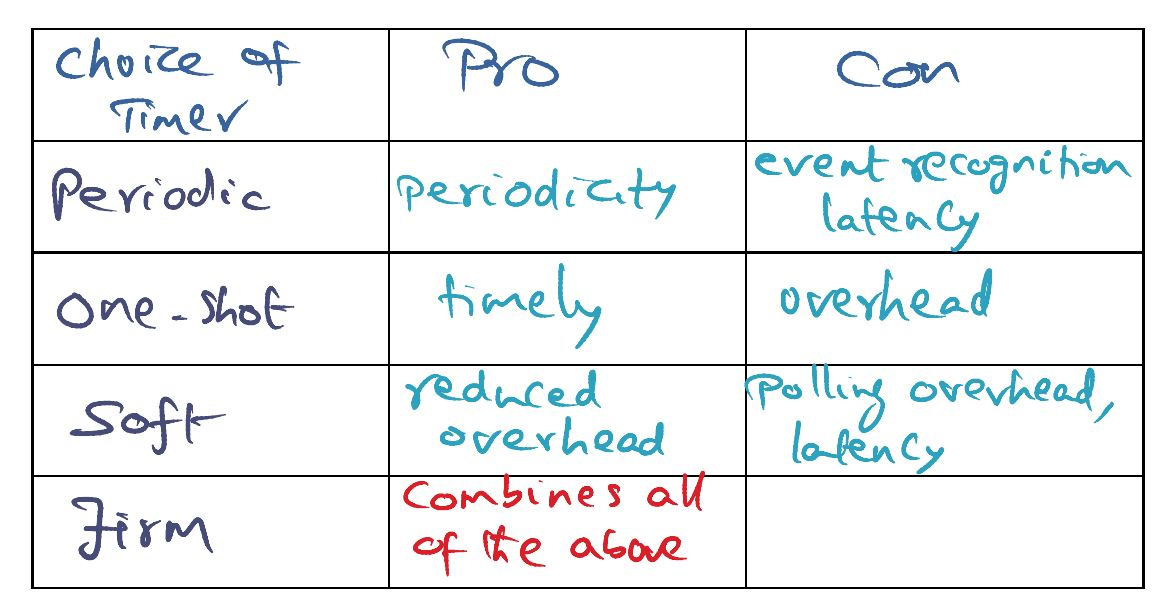 Choice of
Timer
Pro
Con
Periodic
Periodicity
event recognition
latency
One-Shot
timely
overhead
Soft
reduced
overhead
Polling overhead,
latency
Firm
Combines all
of the above